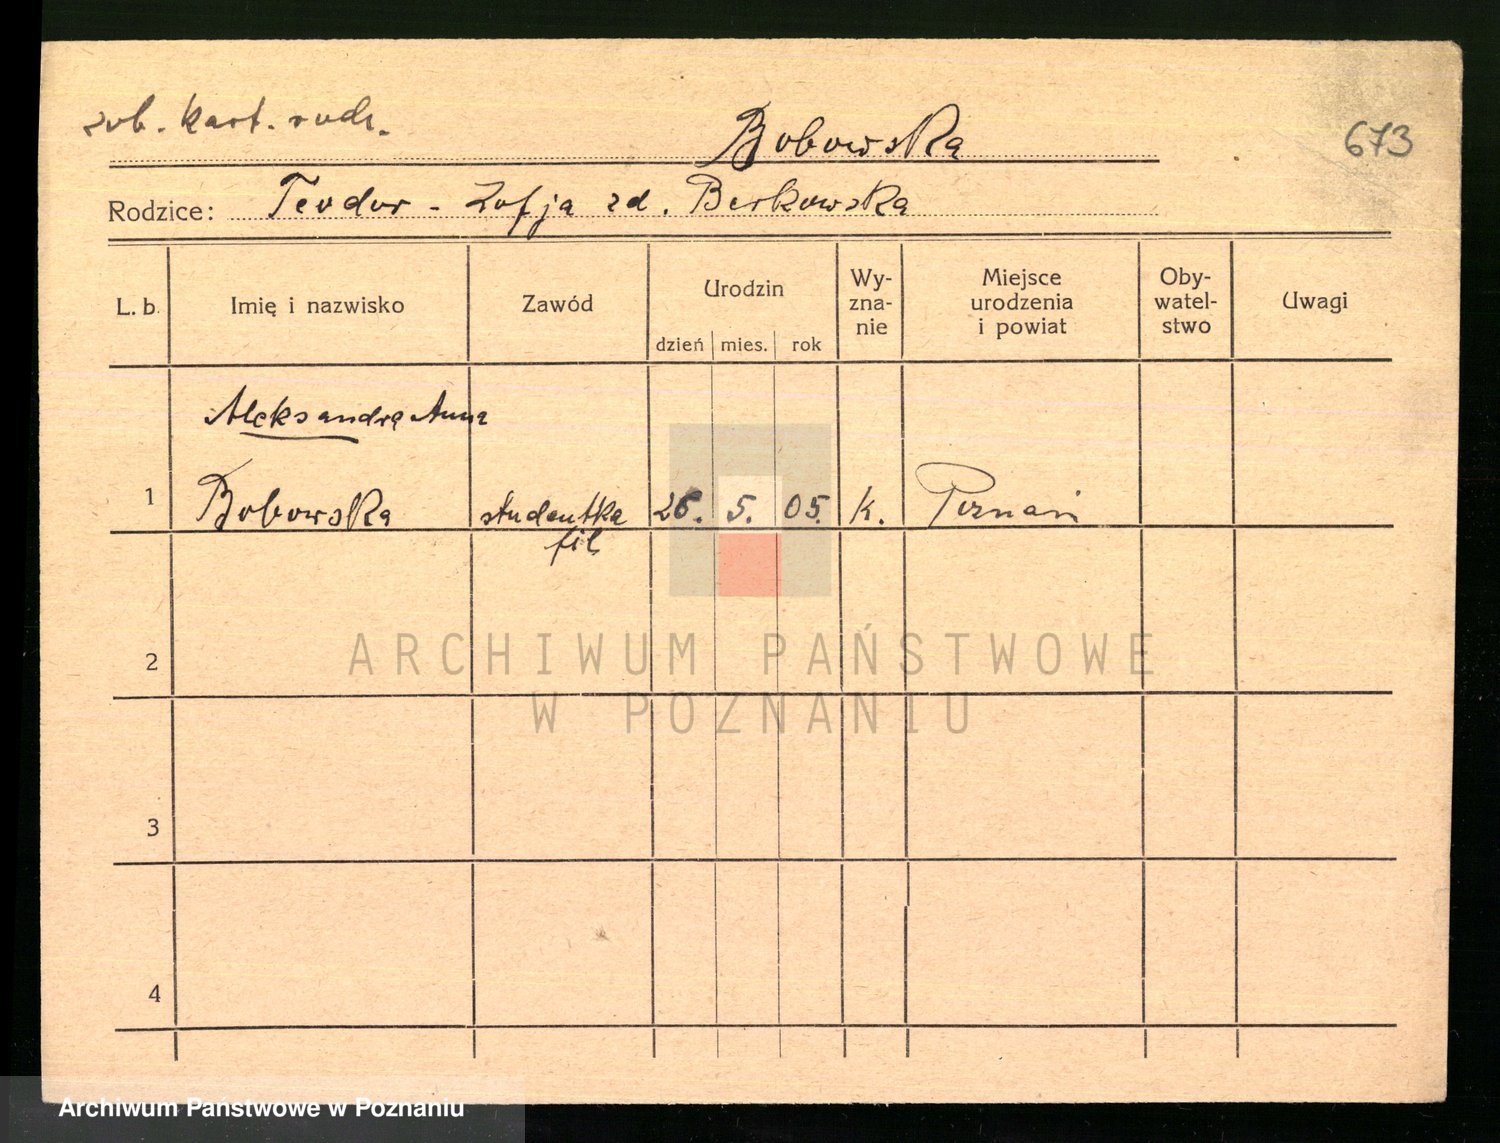 zob. kart. rodz.
Bobowska
673
Rodzice: Teodor - Zofja zd. Berkowska
L. b.
Imię i nazwisko
Zawód
Urodzin
dzień mies. rok
Wy-
zna-
nie
Miejsce
urodzenia
i powiat
Oby-
watel-
stwo
Uwagi
Aleksandra Anna
1 Bobowska studentka 26. 5. 05. k. Poznań
fil
2
3
4
ARCHIWUM PAŃSTWOWE
W POZNANIU
Archiwum Państwowe w Poznaniu